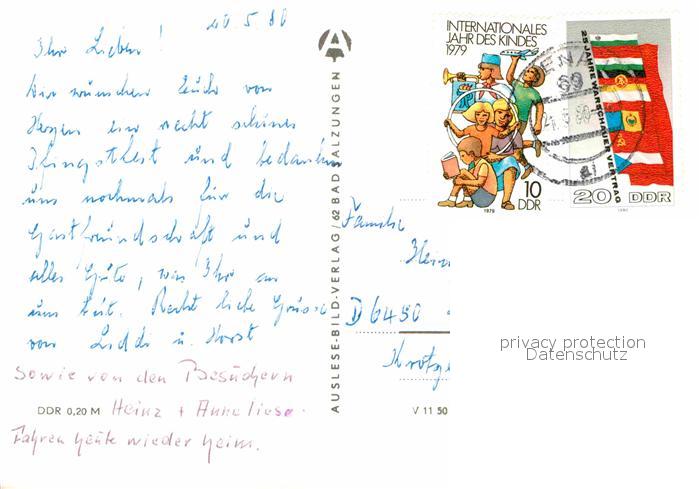 20.5.80
Ihr Lieben!
Wir wünschen Euch von
Herzen ein recht schönes
Pfingstfest und bedanken
uns nochmals für die
Gastfreundschaft und
alles Gute, was Ihr an
uns tut. Recht liebe Grüsse
von Liddi u. Horst
Sowie von den Besuchern
Heinz + Anneliese.
Fahren heute wieder heim.
DDR 0,20 M
AUSLESE-BILD-VERLAG / 62 BAD SALZUNGEN
V 11 50
INTERNATIONALES
JAHR DES KINDES
1979
10
DDR
1979
25 JAHRE WARSCHAUER VERTRAG
20 DDR
1980
JENA
69
Familie
Hein
D 6430
privacy protection
Datenschutz